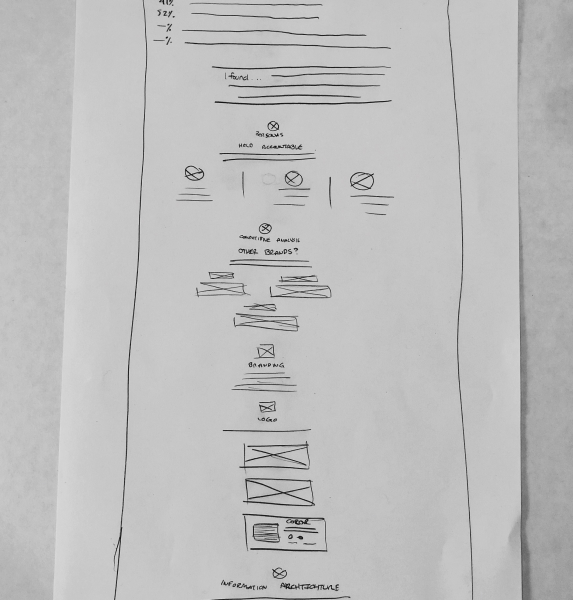 52%.
—%
—%.
I found ...
PERSONAS
HOLD ACCOUNTABLE
COMPETITIVE ANALYSIS
OTHER BRANDS?
BRANDING
LOGO
COLOUR
INFORMATION ARCHITECTURE